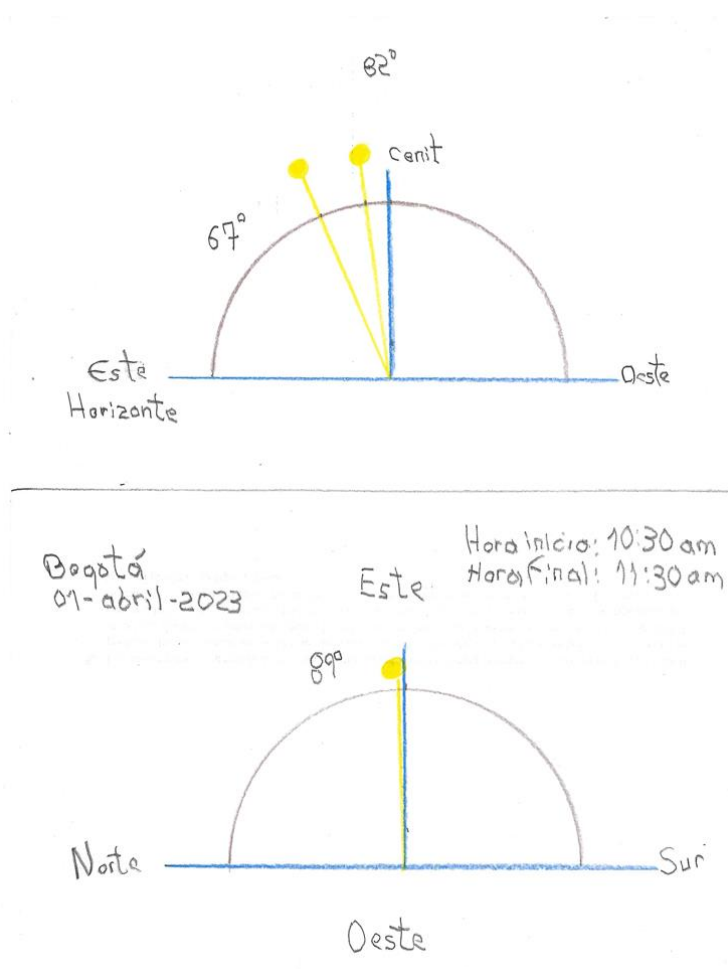 82°
Cenit
67°
Este
Oeste
Horizonte
Bogotá
01-abril-2023
Hora inicio: 10:30 am
Hora Final: 11:30 am
Este
89°
Norte
Sur
Oeste